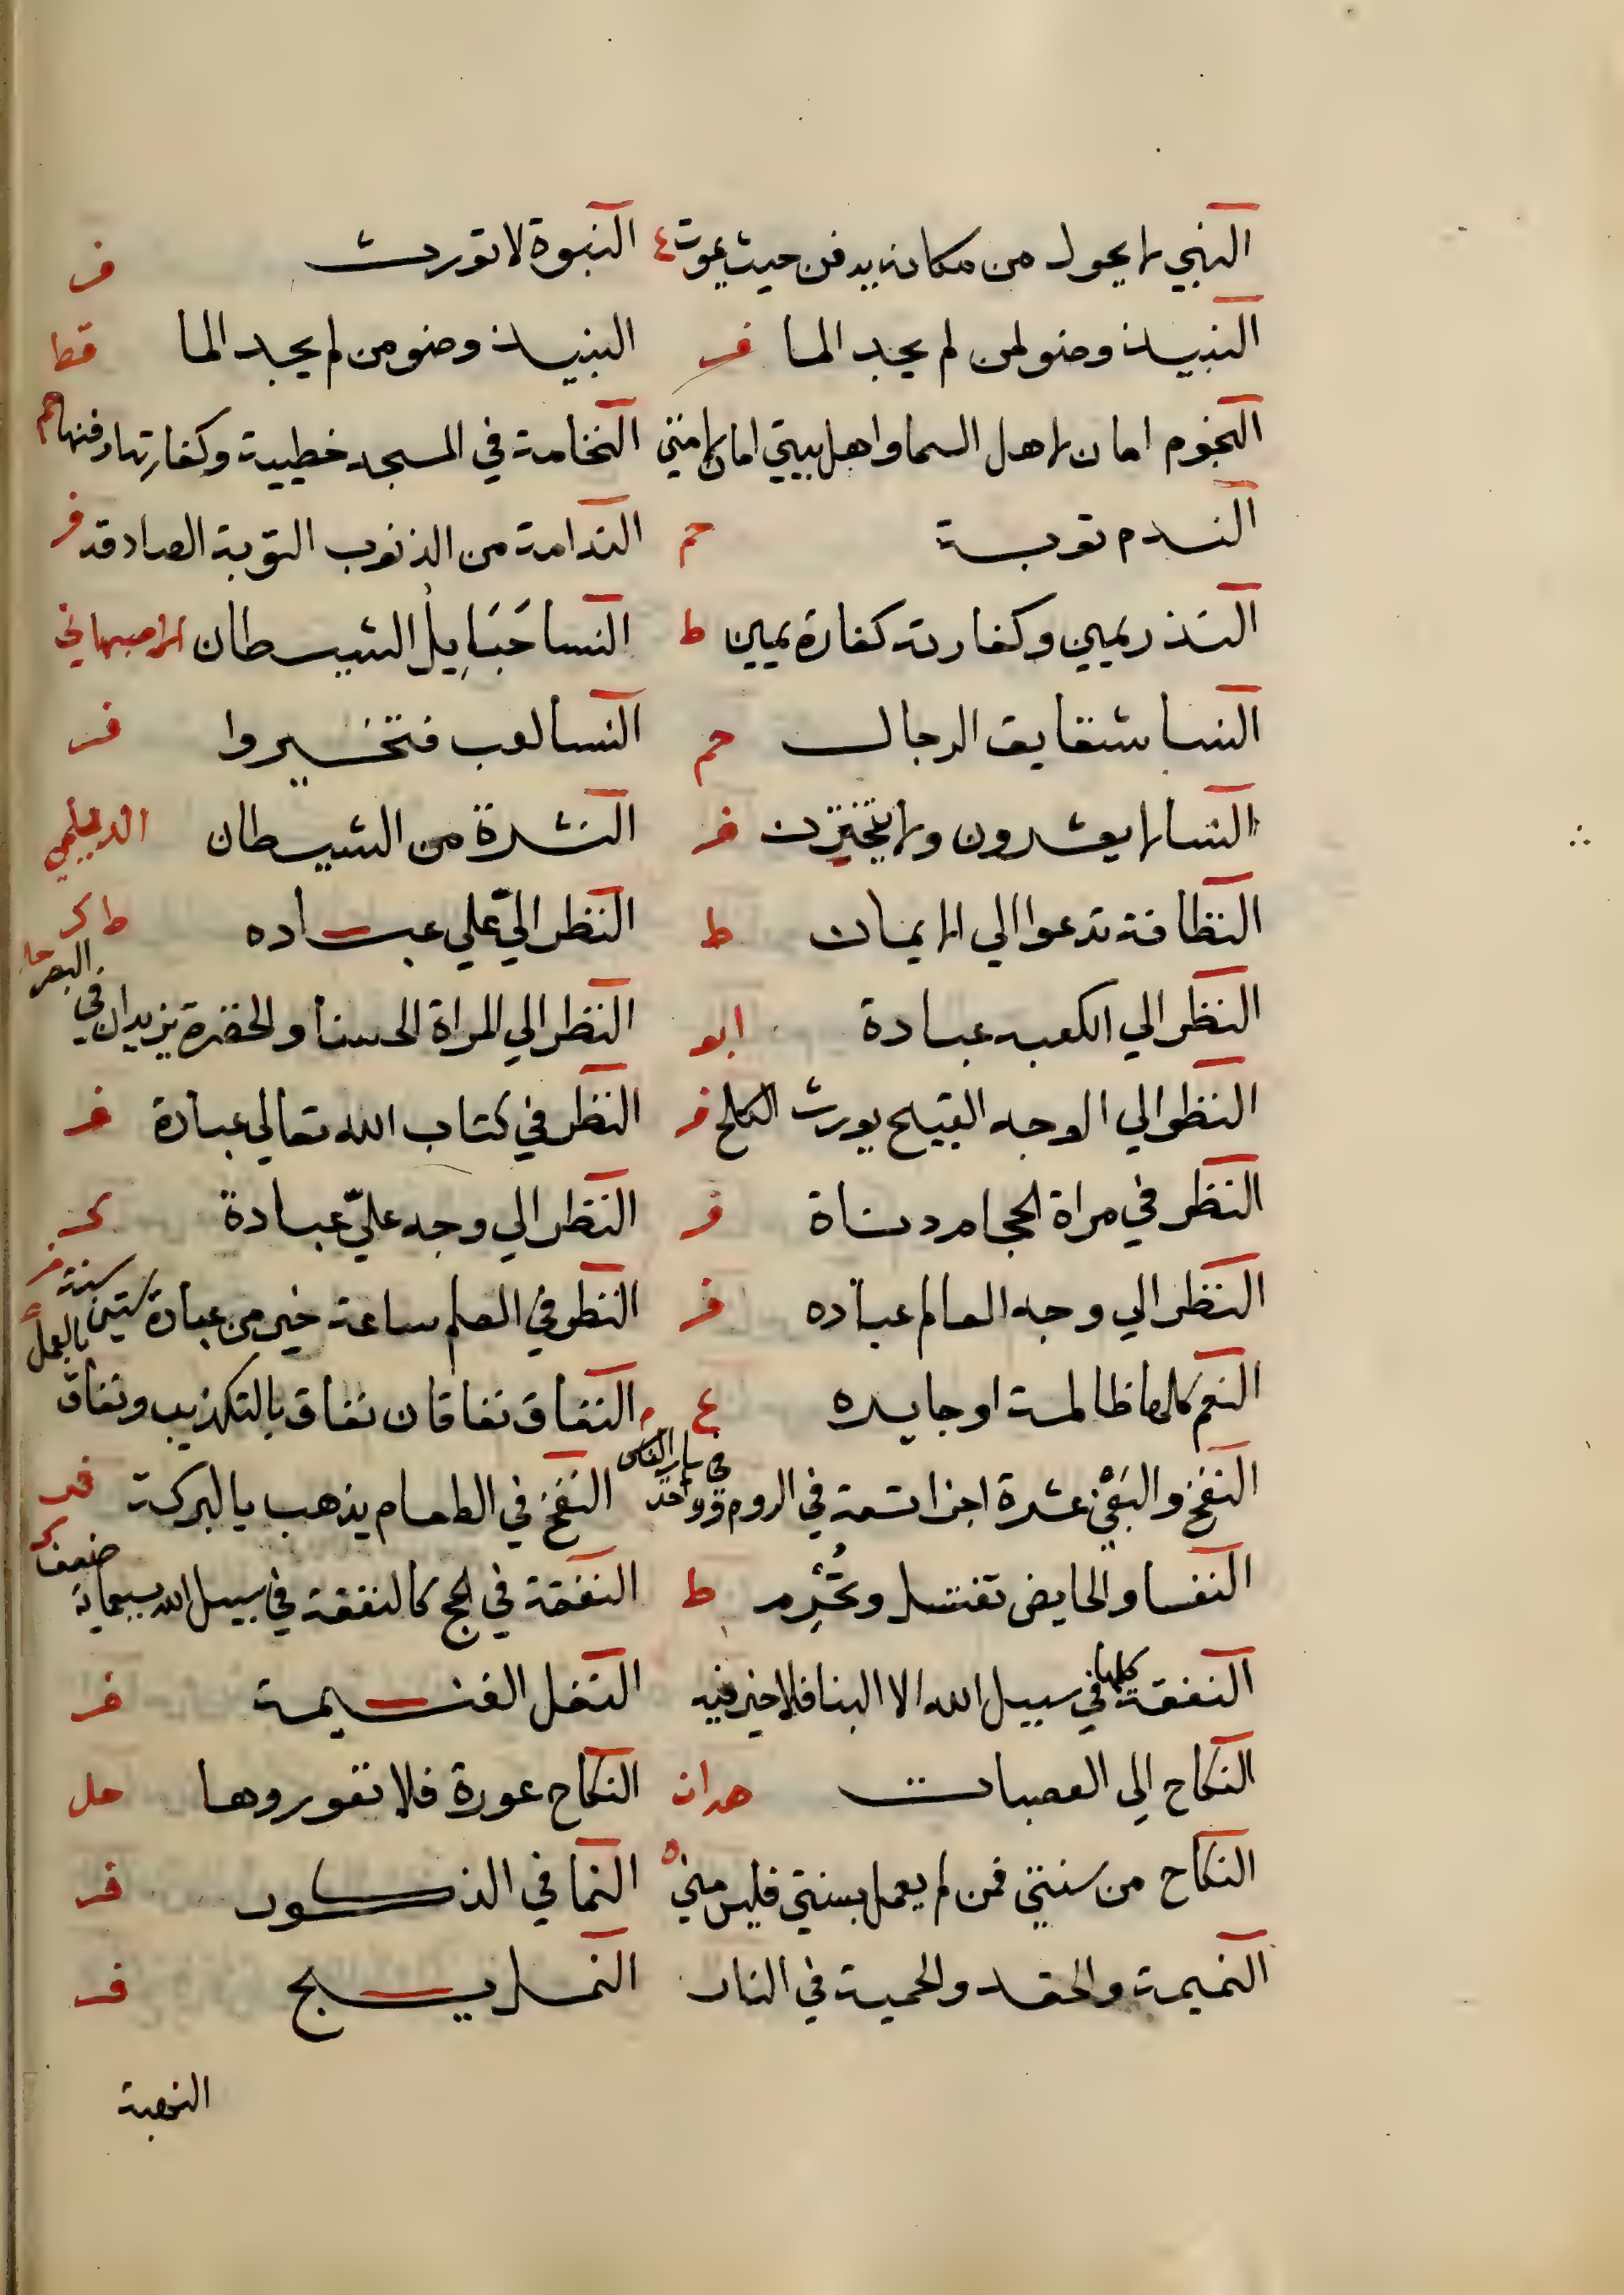 النبي لا يحول من مكانه يدفن حيث يموت ع النبوة لا تورث فر
النبيذ وضو لمن لم يجد الما فر النبيذ وضو من لم يجد الما قط
النجوم امان لاهل السما واهل بيتي امان لامتي النخامة في المسجد خطيية وكفارتها دفنها حم
الندم توبة حم الندامة من الذنوب التوبة الصادقة فر
النذر يمين وكفارته كفارة يمين ط النسا حَبَايِلُ الشيطان الاصبهاني
النسا شقايق الرجال حم النسا لعب فتخيروا فر
النسا لا يعشرون ولا فر النشرة من الشيطان الديلمي
النظافة تدعوا الي الايمان ط النظر الي علي عباده ط ك
النظر الي الكعبه عبادة ابو النظر الي المراة الحسنا والخضرة يزيدان في البصر حل
النظر الي الوجه القبيح يورث الكلح فر النظر في كتاب الله تعالي عبادة فر
النظر في مراة الحجام دناة فر النظر الي وجه عليّ عبادة ك
النظر الي وجه العالم عباده فر النظر في العلم ساعة خير من عبادة ستين سنة فر
النعم كلها ظالمة او جايره ع النفاق نفاقان نفاق بالتكذيب ونفاق بالعمل
النفخ و عشرة اجزا تسعة في الروم وواحد في ساير الناس النفخ في الطعام يذهب بالبركة فر
النفسا والحايض تغتسل وتُحْرِم ط النفقة في الحج كالنفقة في سبيل الله بسبعماية ضعف
النفقة كلها في سبيل الله الا البنا فلا خير فيه النفل الغنيمة فر
النكاح الي العصبات النكاح عورة فلا تعوروها حل
النكاح من سنتي فمن لم يعمل بسنتي فليس مني ه النما في الذكور فر
النميمة والحقد والحمية في النار النمل يسبح فر
النهبة